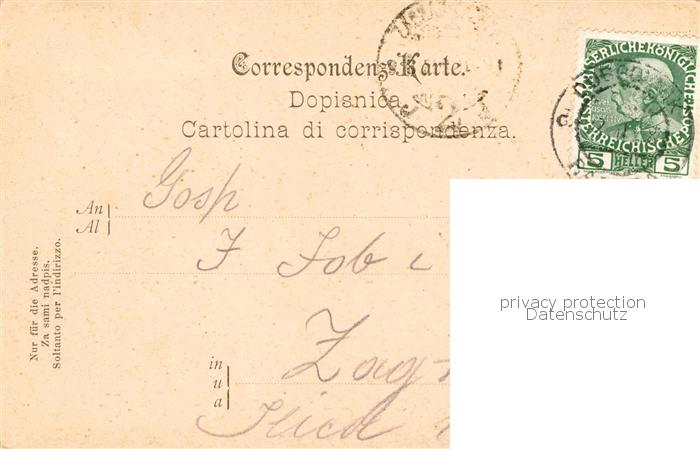 Correspondenz-Karte.
Dopisnica.
Cartolina di corrispondenza.
KAISERLICHEKÖNIGLICHEPOST
ÖSTERREICHISCHE
5 HELLER 5
Gosp
An
Al
F Job i
Zag
in
u
a
Ilica
Nur für die Adresse.
Za sami nadpis.
Soltanto per l'indirizzo.
privacy protection
Datenschutz